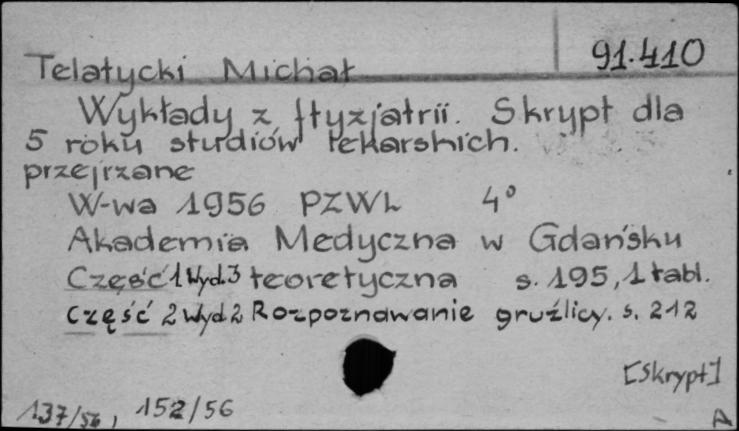 91.410
Telatycki Michał
Wykłady z ftyzjatrii. Skrypt dla
5 roku studiów lekarskich.
przejrzane
W-wa 1956 PZWL 4°
Akademia Medyczna w Gdańsku
Część 1 Wyd.3 teoretyczna s. 195, 1 tabl.
Część 2 Wyd 2 Rozpoznawanie gruźlicy. s. 212
[Skrypt]
137/56, 152/56
A